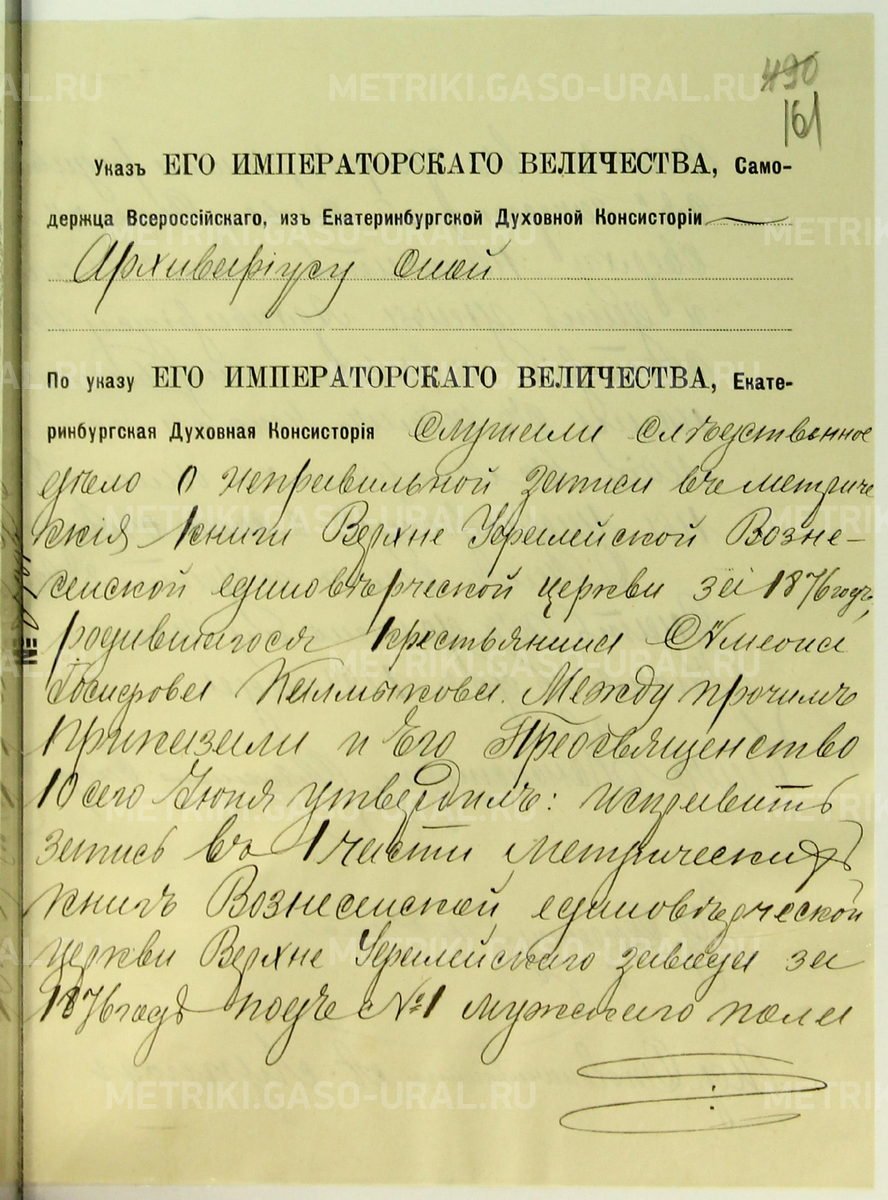 490
161
Указъ ЕГО ИМПЕРАТОРСКАГО ВЕЛИЧЕСТВА, Само-
держца Всероссійскаго, изъ Екатеринбургской Духовной Консисторіи
Архиваріусу оной
По указу ЕГО ИМПЕРАТОРСКАГО ВЕЛИЧЕСТВА, Екате-
ринбургская Духовная Консисторія слушали слѣдственное
дѣло о неправильной записи въ метриче
скія книги Верхне Уфалейской Возне-
сенской единовѣрческой церкви за 1876 годъ,
родившагося крестьянина Симеона
Калмыкова. Между прочимъ
Приказали и Его Преосвященство
10 сего Іюня утвердилъ: исправить
запись въ 1 части метрическихъ
книгъ Вознесенской единовѣрческой
церкви Верхне Уфалейскаго завода за
1876 годъ подъ №1 мужскаго пола
№
METRIKI.GASO-URAL.RU